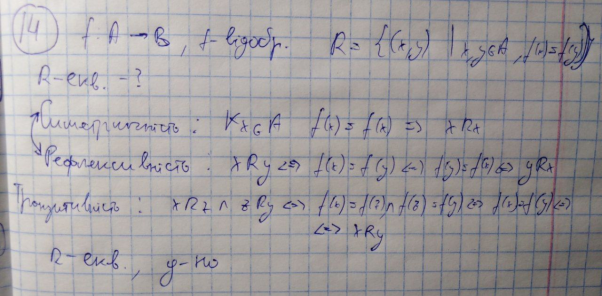 14 f: A → B, f-відобр. R = {(x,y) | x,y∈A, f(x)=f(y)}
R-екв. -?
Симетричність: ∀x∈A f(x)=f(x) => xRx
Рефлексивність: xRy <=> f(x)=f(y) <=> f(y)=f(x) <=> yRx
Транзитивність: xRz ∧ zRy <=> f(x)=f(z) ∧ f(z)=f(y) <=> f(x)=f(y) <=>
<=> xRy
R-екв., у-но